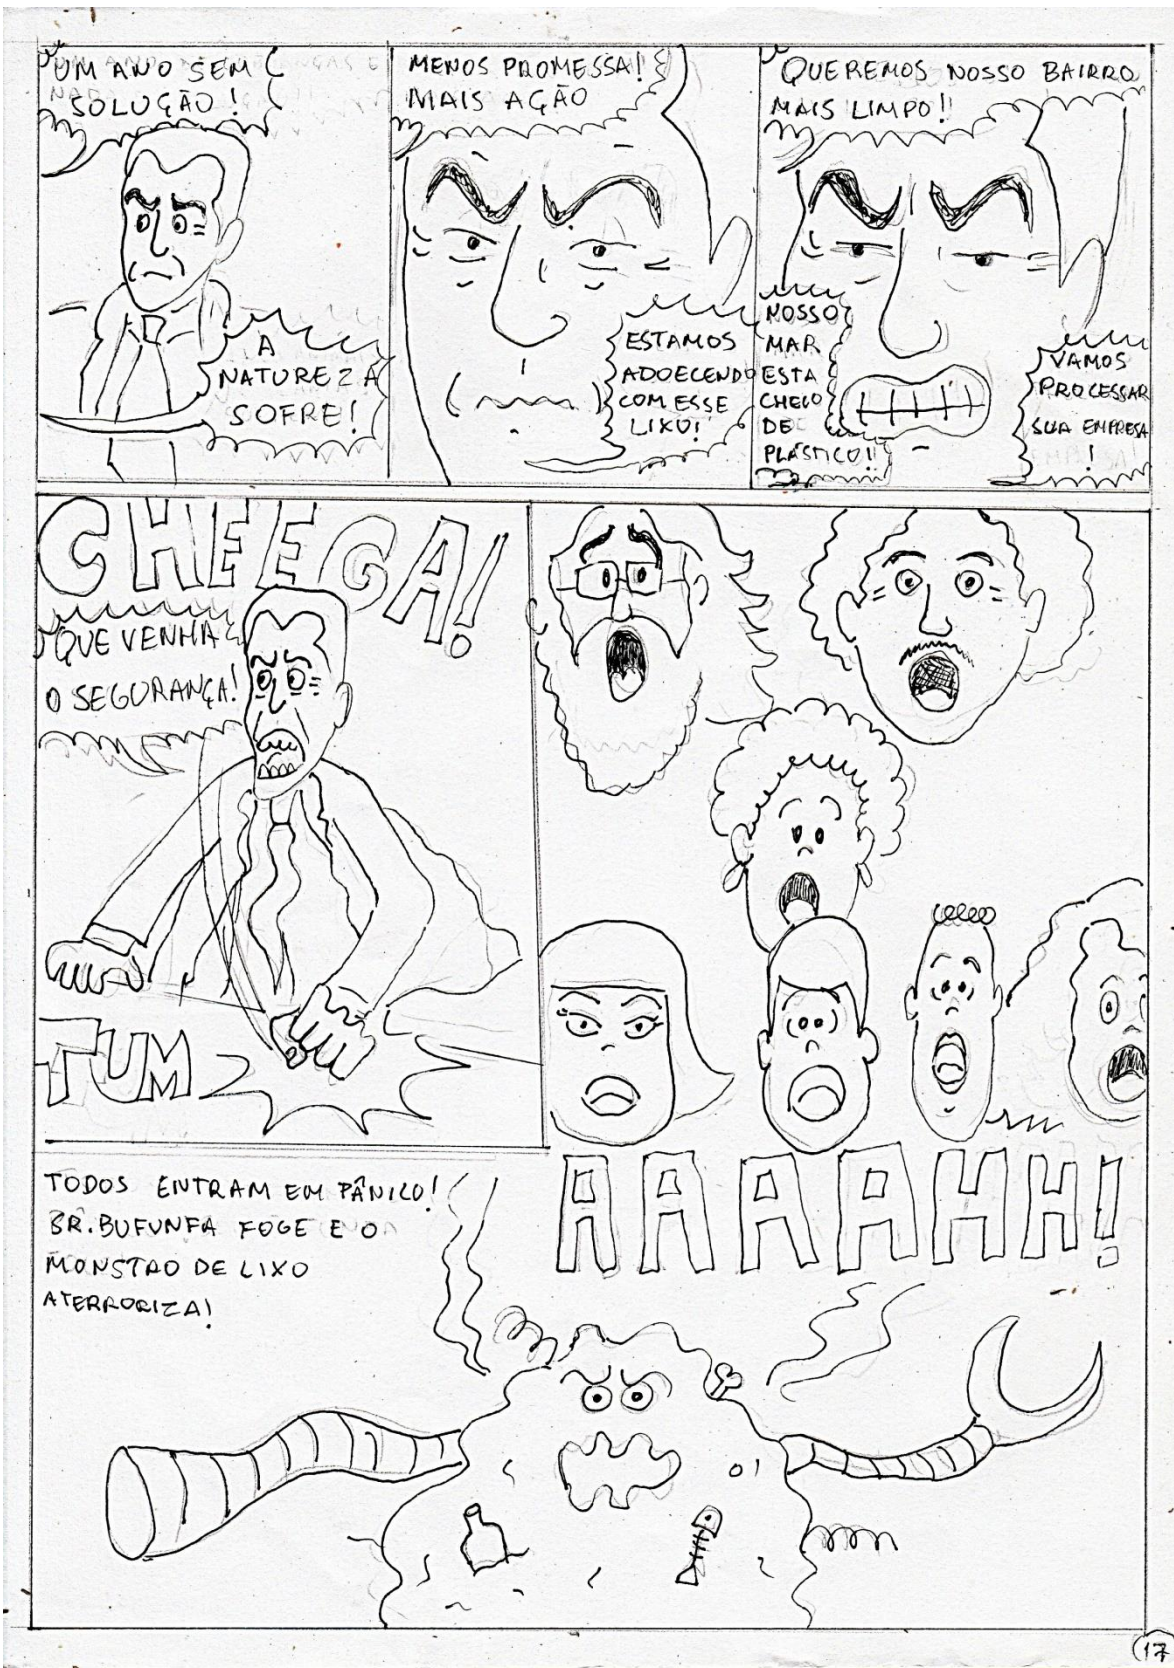 UM ANO SEM
SOLUÇÃO!
A
NATUREZA
SOFRE!
MENOS PROMESSA!
MAIS AÇÃO
ESTAMOS
ADOECENDO
COM ESSE
LIXO!
QUEREMOS NOSSO BAIRRO
MAIS LIMPO!!
NOSSO
MAR
ESTA
CHEIO
DE
PLÁSTICO!!
VAMOS
PROCESSAR
SUA EMPRESA
!
CHEEGA!
QUE VENHA
O SEGURANÇA!
TUM
AAAAHH!
TODOS ENTRAM EM PÂNICO!
SR. BUFUNFA FOGE E O
MONSTRO DE LIXO
ATERRORIZA!
17